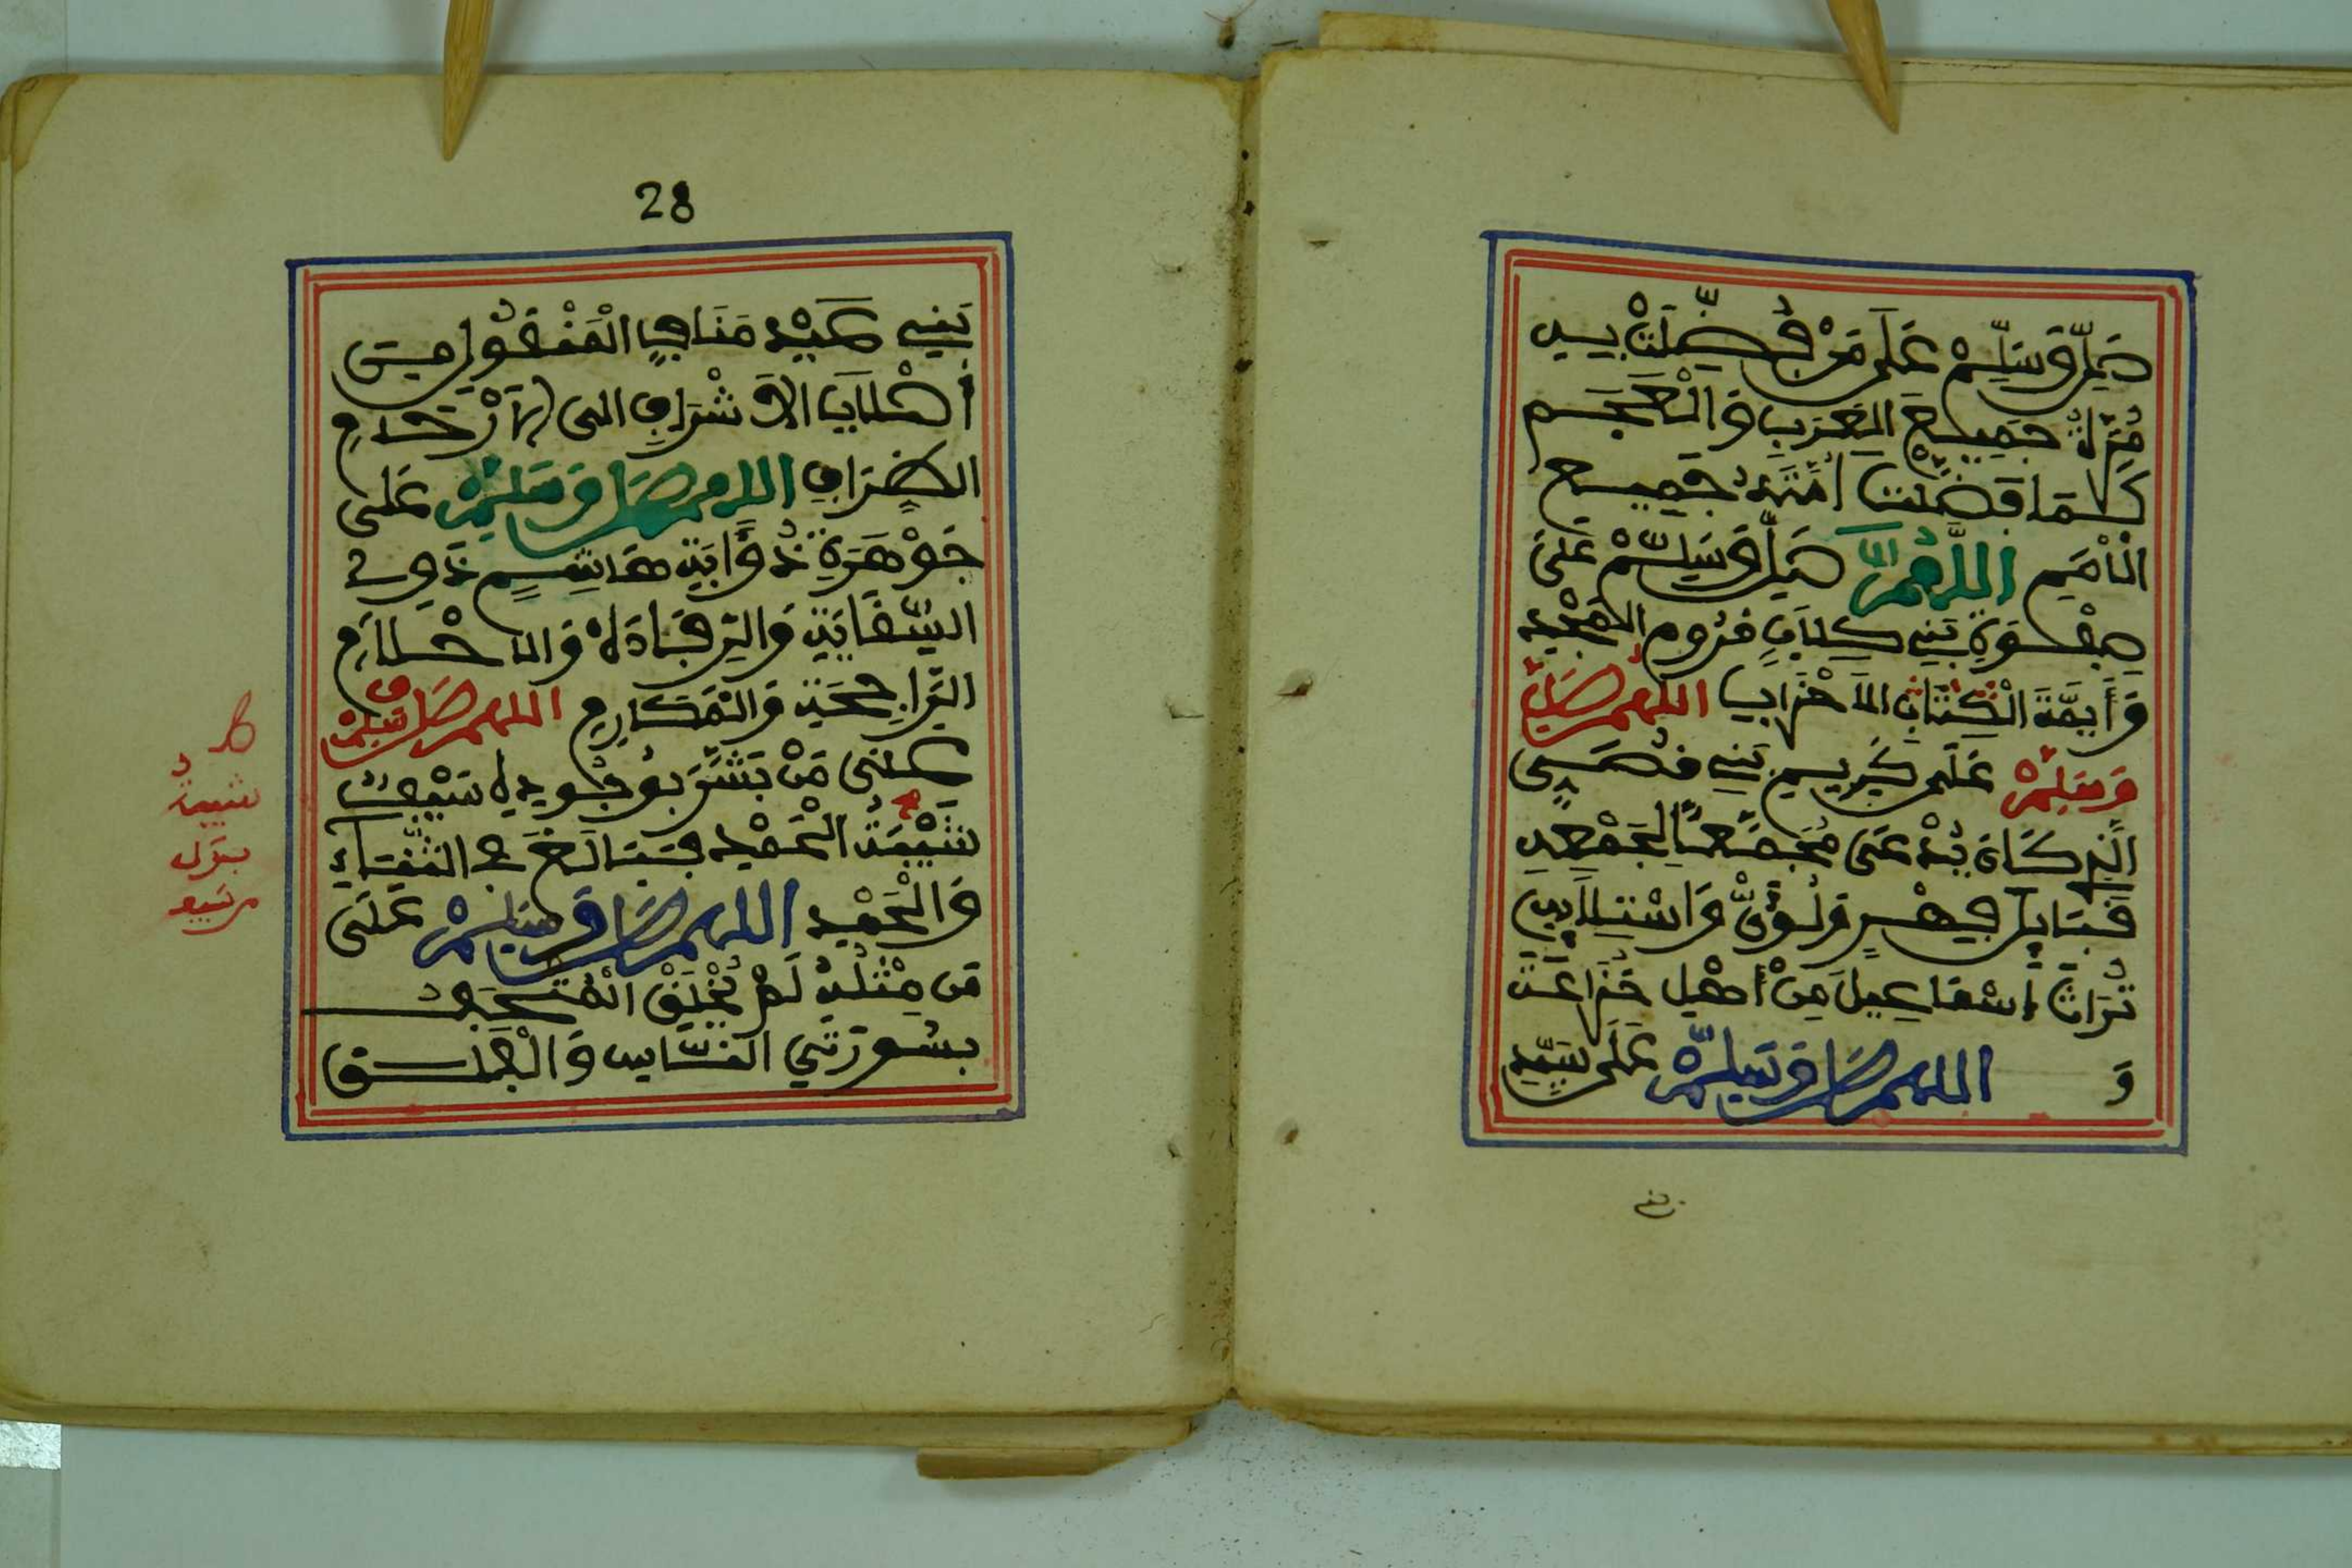 صَلِّ وَسَلِّمْ عَلَى مَنْ فُضِّلَتْ بِهِ
مُرَّةُ جَمِيعَ الْعَرَبِ وَالْعَجَمِ
كَمَا فَضُلَتْ أُمَّتُهُ جَمِيعَ
الْأُمَمِ اللَّهُمَّ صَلِّ وَسَلِّمْ عَلَى
صَفْوَةِ بَنِي كِلَابٍ فُرُومِ الْمَجْدِ
وَأَيِمَّةَ الْكِتَابِ الَاحْزَابِ اللهم صَلِّ
وَسَلِّمْ عَلَى كَرِيمِ بَنِي فُصَيٍّ
الَّذِي كَانَ يُدْعَى مُجَمِّعاً لِجَمْعِهِ
قَبَايِلَ فِهْرِ وَلُؤَيٍّ وَاسْتِلَابِهِ
تُرَاثَ إِسْمَاعِيلَ مِنْ أَهْلِ خُزَاعَتَ
وَ اللهم صَلِّ وَسَلِّمْ عَلَى سَيِّدِ
28
بَنِي عَبْدِ مَنَافِ الْمَنْقُولِ مِنَ
أَصْلَابِ الَاشْرَافِ الى الَارْحَامِ
اللهم صَلِّ وَسَلِّمْ عَلَى
جَوْهَرَةِ ذُؤَابَةِ هَاشِمٍ ذَوِي
السِّقَايَةِ وَالرِّفَادَةِ وَالاحْلَامِ
الرَّاجِحَةِ وَالْمَكَارِمِ اللهم صَلِّ وَسَلِّمْ
عَلَى مَنْ بَشَّرَ بِوُجُودِهِ سَيْفُ
شَيْبَةُ الْحَمْدِ فَبَالَغَ فِي الثَّنَاءِ
وَالْحَمْدِ اللهم صَلِّ وَسَلِّمْ عَلَى
مَنْ مِثْلُهُ لَمْ يُخْلَقْ
بِسُورَتَيِ النَّاسِ وَالْفَلَقِ
ط
شيبةُ
بدل
سيف